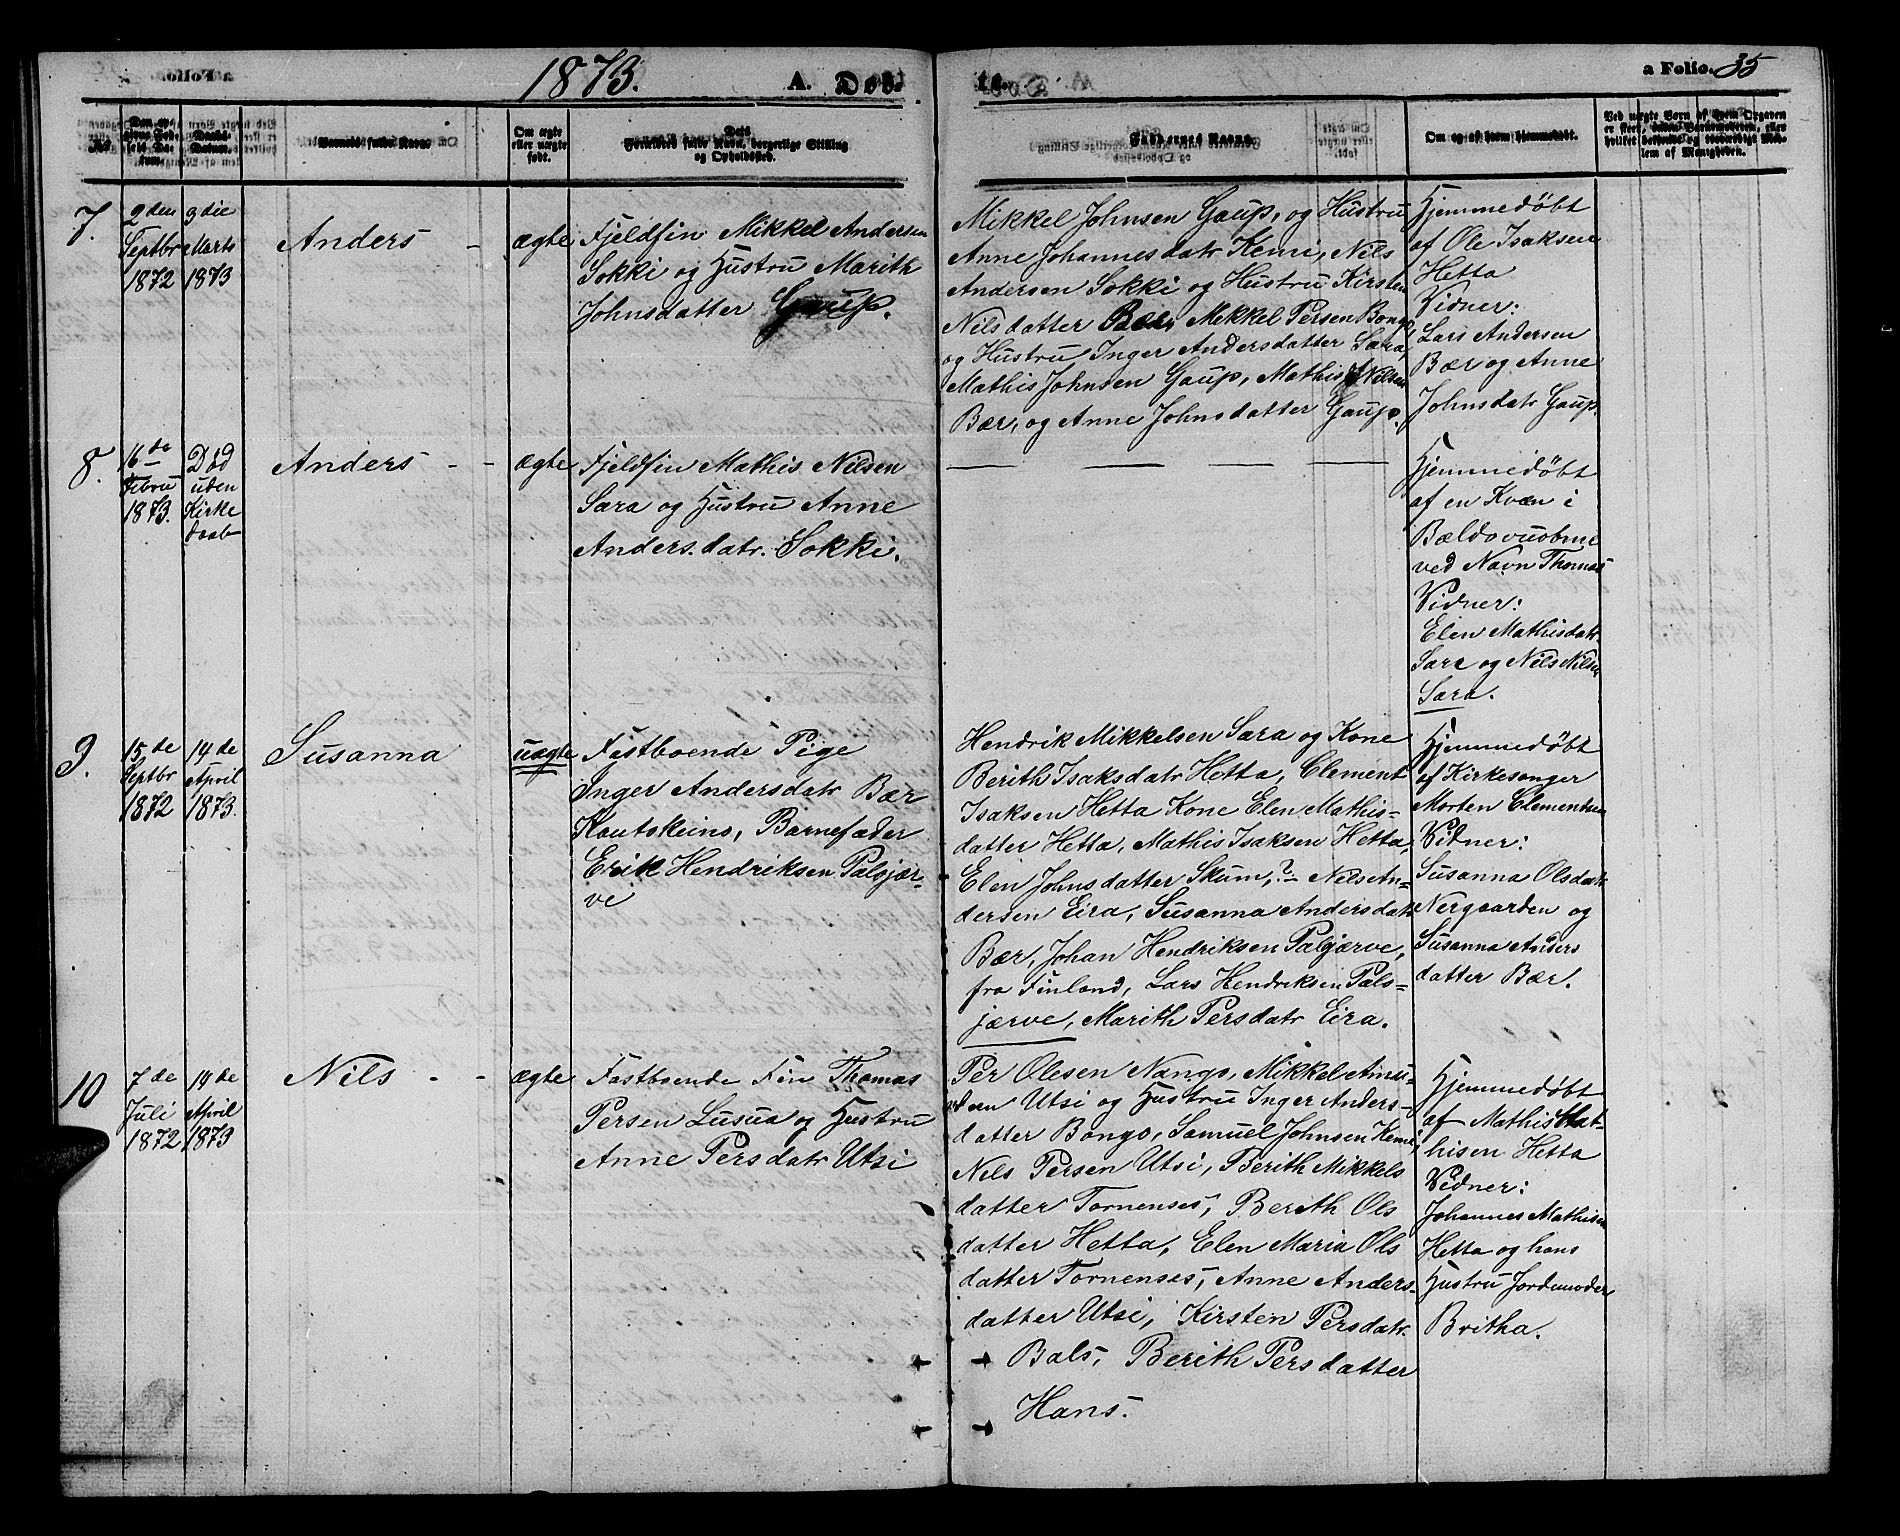 1873.
A. Døb
te.
a Folio. 35
No.
Den op-
givne Fød-
sels Da-
tum.
Daabs-
Datum.
Barnets fulde Navn.
Om ægte
eller uægte
født.
Dets
Forældres fulde Navn, borgerlige Stilling
og Opholdssted.
Faddernes Navne.
Om og af hvem hjemmedøbt.
Ved uægte Børn af hvem Opgaven
er skeet, enten Barnemoderen, eller
hvilket bekjendt og troværdigt Med-
lem af Menigheden.
7.
2den
Septbr
1872
9die
Marts
1873
Anders
ægte
Fjeldfin Mikkel Andersen
Sokki og Hustru Marith
Johnsdatter Gaup.
Mikkel Johnsen Gaup, og Hustru
Anne Johannesdatr Kemi, Nils
Andersen Sokki og Hustru Kirsten
Nilsdatter Bær, Mikkel Persen Bongo,
og Hustru Inger Andersdatter Sara,
Mathis Johnsen Gaup, Mathis Nilsen
Bær, og Anne Johnsdatter Gaup.
Hjemmedøbt
af Ole Isaksen
Hetta
Vidner:
Lars Andersen
Bær og Anne
Johnsdatr Gaup.
8.
16de
Febru
1873.
Død
uden
Kirke
daab
Anders
ægte
Fjeldfin Mathis Nilsen
Sara og Hustru Anne
Anders.datr. Sokki.
Hjemmedøbt
af en Kvæn i
Bældovuobme
ved Navn Thomas
Vidner:
Elen Mathisdatr.
Sara og Nils Nilsen
Sara.
9.
15de
Septbr
1872
14de
April
1873.
Susanna
uægte
Fastboende Pige
Inger Andersdatr Bær
Koutokeino, Barnefader
Erik Hendriksen Palsjær-
vi
Hendrik Mikkelsen Sara og Kone
Berith Isaksdatr Hetta, Clement
Isaksen Hetta Kone Elen Mathis-
datter Hetta, Mathis Isaksen Hetta,
Elen Johnsdatter Skum,?- Nils An-
dersen Eira, Susanna Andersdatr
Bær, Johan Hendriksen Palsjærve,
fra Finland, Lars Hendriksen Pals-
jærve, Marith Persdatr Eira.
Hjemmedøbt
af Kirkesanger
Morten Clementsen
Vidner:
Susanna Olsdatr
Nergaarden og
Susanna Anders
datter Bær.
10
7de
Juli
1872
14de
April
1873
Nils
ægte
Fastboende Fin Thomas
Persen Lusua og Hustru
Anne Persdatr Utsi
Per Olesen Nango, Mikkel Amu-
Utsi og Hustru Inger Anders-
datter Bongo, Samuel Johnsen Kemi,
Nils Persen Utsi, Berith Mikkels
datter Tornenses, Berith Ols
datter Hetta, Elen Maria Ols
datter Tornenses, Anne Anders-
datter Utsi, Kirsten Persdatr.
Bals, Berith Persdatter
Hans.
Hjemmedøbt
af Mathis Mat-
hisen Hetta
Vidner:
Johannes Mathisen
Hetta og hans
Hustru Jordemoder
Britha.